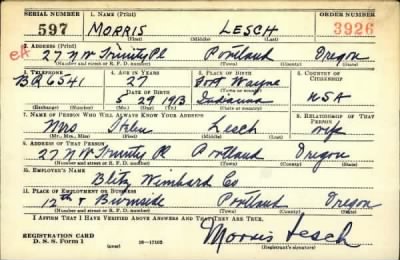 SERIAL NUMBER 1. NAME (Print) ORDER NUMBER
597 MORRIS LESCH 3926
(First) (Middle) (Last)
2. ADDRESS (Print)
CA 27 N W Trinity Pl Portland Oregon
(Number and street or R. F. D. number) (Town) (County) (State)
3. TELEPHONE 4. AGE IN YEARS 5. PLACE OF BIRTH 6. COUNTRY OF CITIZENSHIP
BR 6541 27 Fort Wayne
DATE OF BIRTH
5 29 1913 Indianna USA
(Exchange) (Number) (Mo.) (Day) (Yr.) (State or country)
7. NAME OF PERSON WHO WILL ALWAYS KNOW YOUR ADDRESS 8. RELATIONSHIP OF THAT PERSON
Mrs Helen Lesch wife
(Mr., Mrs., Miss) (First) (Middle) (Last)
9. ADDRESS OF THAT PERSON
27 N W Trinity Pl Portland Oregon
(Number and street or R. F. D. number) (Town) (County) (State)
10. EMPLOYER'S NAME
Blitz Weinhard Co
11. PLACE OF EMPLOYMENT OR BUSINESS
12th & Burnside Portland Oregon
(Number and street or R. F. D. number) (Town) (County) (State)
I AFFIRM THAT I HAVE VERIFIED ABOVE ANSWERS AND THAT THEY ARE TRUE.
REGISTRATION CARD
D. S. S. Form 1 (over) 16—17105 Morris Lesch
(Registrant's signature)